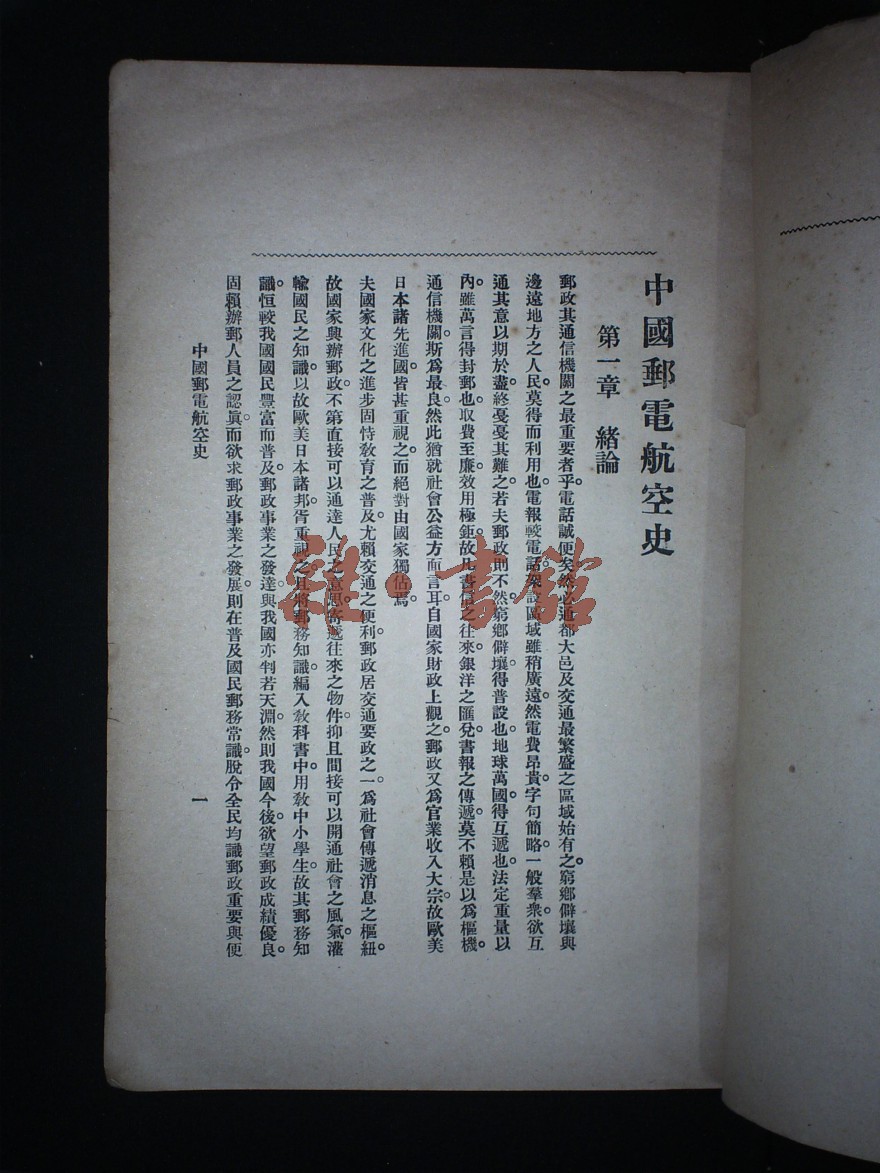 中國郵電航空史
第一章　緒論
郵政其通信機關之最重要者乎。電話誠便矣。然必通都大邑及交通最繁盛之區域始有之。窮鄉僻壤與
邊遠地方之人民。莫得而利用也。電報較電話架設區域雖稍廣遠。然電費昂貴。字句簡略。一般羣衆。欲互
通其意以期於盡。終戞戞其難之。若夫郵政則不然。窮鄉僻壤。得普設也。地球萬國。得互遞也。法定重量以
內。雖萬言得封郵也。取費至廉。效用極鉅。故凡書信之往來。銀洋之匯兌。書報之傳遞。莫不賴是以爲樞機。
通信機關。斯爲最良。然此猶就社會公益方面言耳。自國家財政上觀之。郵政又爲官業收入大宗。故歐美
日本諸先進國。皆甚重視之。而絕對由國家獨佔焉。
夫國家文化之進步。固恃敎育之普及。尤賴交通之便利。郵政居交通要政之一。爲社會傳遞消息之樞紐。
故國家興辦郵政。不第直接可以通達人民之意思。寄遞往來之物件。抑且間接可以開通社會之風氣。灌
輸國民之知識。以故歐美日本諸邦。胥重視之。且將郵務知識。編入敎科書中。用敎中小學生。故其郵務知
識。恒較我國國民豐富而普及。郵政事業之發達。與我國亦判若天淵。然則我國今後。欲望郵政成績優良。
固賴辦郵人員之認眞。而欲求郵政事業之發展。則在普及國民郵務常識。脫令全民均識郵政重要與便
中國郵電航空史
一
雜·書館